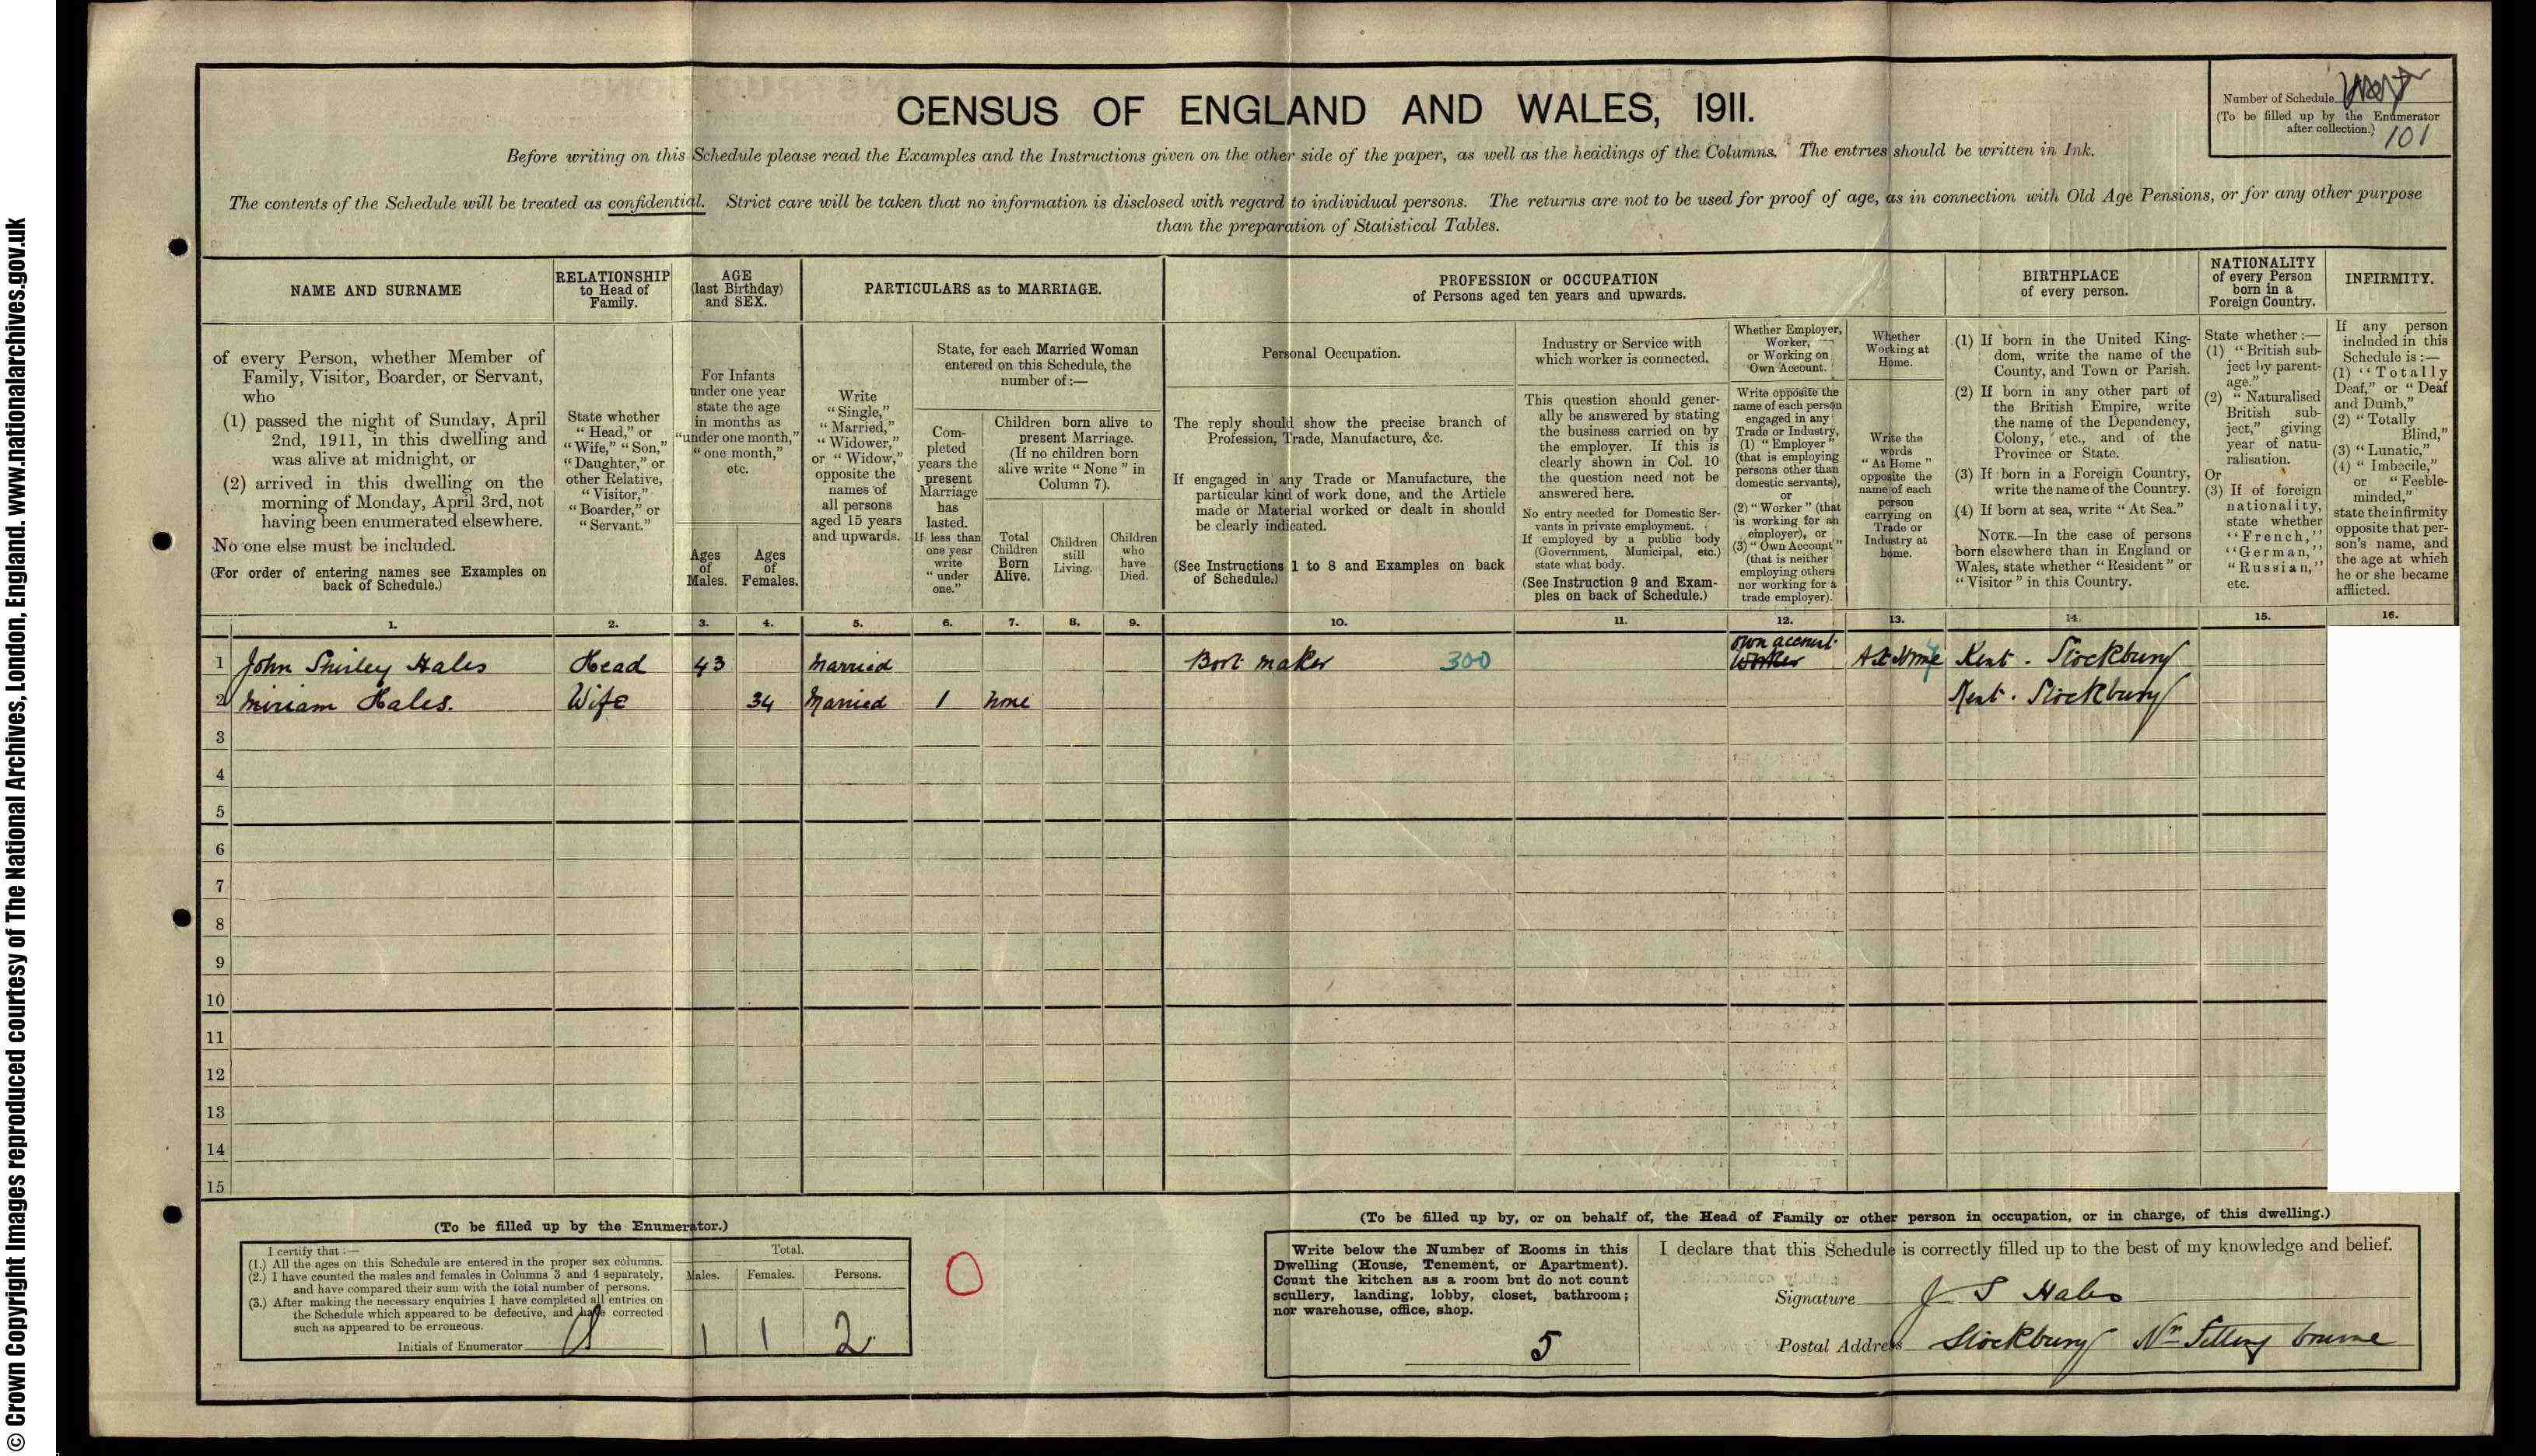 © Crown Copyright Images reproduced courtesy of The National Archives, London, England. www.nationalarchives.gov.uk
CENSUS OF ENGLAND AND WALES, 1911.
Number of Schedule
(To be filled up by the Enumerator
after collection.)
101
Before writing on this Schedule please read the Examples and the Instructions given on the other side of the paper, as well as the headings of the Columns. The entries should be written in Ink.
The contents of the Schedule will be treated as confidential. Strict care will be taken that no information is disclosed with regard to individual persons. The returns are not to be used for proof of age, as in connection with Old Age Pensions, or for any other purpose
than the preparation of Statistical Tables.
NAME AND SURNAME
of every Person, whether Member of
Family, Visitor, Boarder, or Servant,
who
(1) passed the night of Sunday, April
2nd, 1911, in this dwelling and
was alive at midnight, or
(2) arrived in this dwelling on the
morning of Monday, April 3rd, not
having been enumerated elsewhere.
No one else must be included.
(For order of entering names see Examples on
back of Schedule.)
RELATIONSHIP
to Head of
Family.
State whether
"Head," or
"Wife," "Son,"
"Daughter," or
other Relative,
"Visitor,"
"Boarder," or
"Servant."
AGE
(last Birthday)
and SEX.
For Infants
under one year
state the age
in months as
"under one month,"
"one month,"
etc.
Ages
of
Males.
Ages
of
Females.
PARTICULARS as to MARRIAGE.
Write
"Single,"
"Married,"
"Widower,"
or "Widow,"
opposite the
names of
all persons
aged 15 years
and upwards.
State, for each Married Woman
entered on this Schedule, the
number of:—
Com-
pleted
years the
present
Marriage
has
lasted.
If less than
one year
write
"under
one."
Children born alive to
present Marriage.
(If no children born
alive write "None" in
Column 7).
Total
Children
Born
Alive.
Children
still
Living.
Children
who
have
Died.
PROFESSION or OCCUPATION
of Persons aged ten years and upwards.
Personal Occupation.
The reply should show the precise branch of
Profession, Trade, Manufacture, &c.
If engaged in any Trade or Manufacture, the
particular kind of work done, and the Article
made or Material worked or dealt in should
be clearly indicated.
(See Instructions 1 to 8 and Examples on back
of Schedule.)
Industry or Service with
which worker is connected.
This question should gener-
ally be answered by stating
the business carried on by
the employer. If this is
clearly shown in Col. 10
the question need not be
answered here.
No entry needed for Domestic Ser-
vants in private employment.
If employed by a public body
(Government, Municipal, etc.)
state what body.
(See Instruction 9 and Exam-
ples on back of Schedule.)
Whether Employer,
Worker,
or Working on
Own Account.
Write opposite the
name of each person
engaged in any
Trade or Industry,
(1) "Employer"
(that is employing
persons other than
domestic servants),
or
(2) "Worker" (that
is working for an
employer), or
(3) "Own Account"
(that is neither
employing others
nor working for a
trade employer).
Whether
Working at
Home.
Write the
words
"At Home"
opposite the
name of each
person
carrying on
Trade or
Industry at
home.
BIRTHPLACE
of every person.
(1) If born in the United King-
dom, write the name of the
County, and Town or Parish.
(2) If born in any other part of
the British Empire, write
the name of the Dependency,
Colony, etc., and of the
Province or State.
(3) If born in a Foreign Country,
write the name of the Country.
(4) If born at sea, write "At Sea."
NOTE.—In the case of persons
born elsewhere than in England or
Wales, state whether "Resident" or
"Visitor" in this Country.
NATIONALITY
of every Person
born in a
Foreign Country.
State whether:—
(1) "British sub-
ject by parent-
age."
(2) "Naturalised
British sub-
ject," giving
year of natu-
ralisation.
Or
(3) If of foreign
nationality,
state whether
"French,"
"German,"
"Russian,"
etc.
INFIRMITY.
If any person
included in this
Schedule is:—
(1) "Totally
Deaf," or "Deaf
and Dumb,"
(2) "Totally
Blind,"
(3) "Lunatic,"
(4) "Imbecile,"
or "Feeble-
minded,"
state the infirmity
opposite that per-
son's name, and
the age at which
he or she became
afflicted.
1. 2. 3. 4. 5. 6. 7. 8. 9. 10. 11. 12. 13. 14. 15. 16.
own account
1 John Shirley Hales Head 43 Married Boot maker 300 Worker At Home Kent. Stockbury
2 Miriam Hales. Wife 34 Married 1 None Kent. Stockbury
3
4
5
6
7
8
9
10
11
12
13
14
15
(To be filled up by the Enumerator.)
I certify that:—
(1.) All the ages on this Schedule are entered in the proper sex columns.
(2.) I have counted the males and females in Columns 3 and 4 separately,
and have compared their sum with the total number of persons.
(3.) After making the necessary enquiries I have completed all entries on
the Schedule which appeared to be defective, and have corrected
such as appeared to be erroneous.
Initials of Enumerator
Total.
Males. Females. Persons.
1 1 2
0
(To be filled up by, or on behalf of, the Head of Family or other person in occupation, or in charge, of this dwelling.)
Write below the Number of Rooms in this
Dwelling (House, Tenement, or Apartment).
Count the kitchen as a room but do not count
scullery, landing, lobby, closet, bathroom;
nor warehouse, office, shop.
5
I declare that this Schedule is correctly filled up to the best of my knowledge and belief.
Signature J S Hales
Postal Address Stockbury Nr Sittingbourne